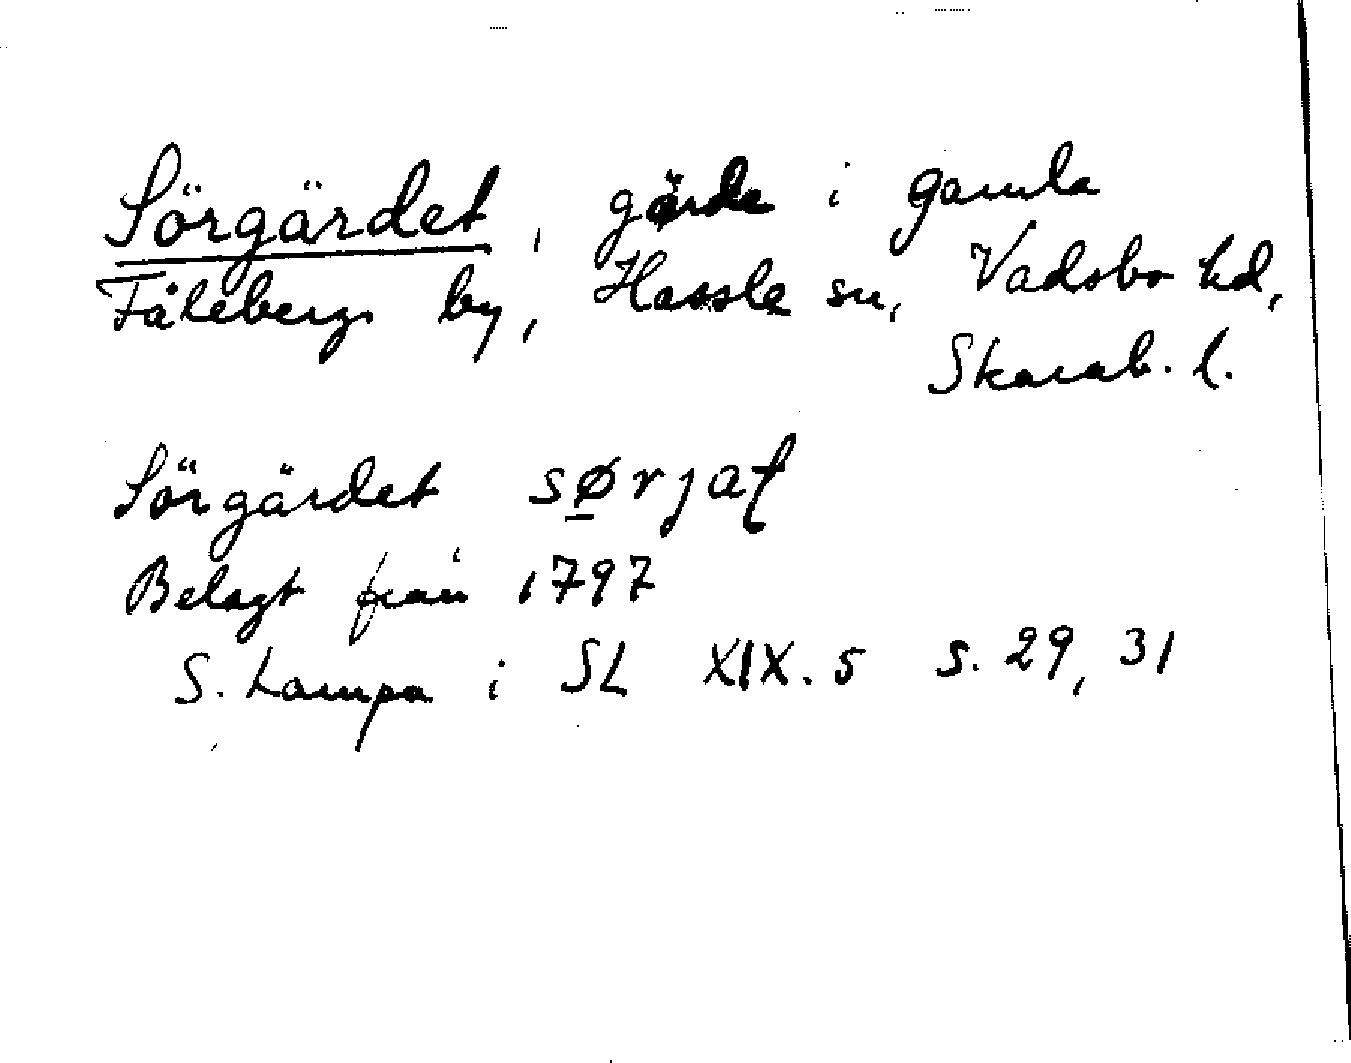 Sörgärdet, gärde i gamla
Fåleberg by, Hassle sn, Vadsbo hd,
Skarab. l.
Sörgärdet sørjaƭ
Belagt från 1797
S. Lampa i SL XIX. 5 s. 29, 31